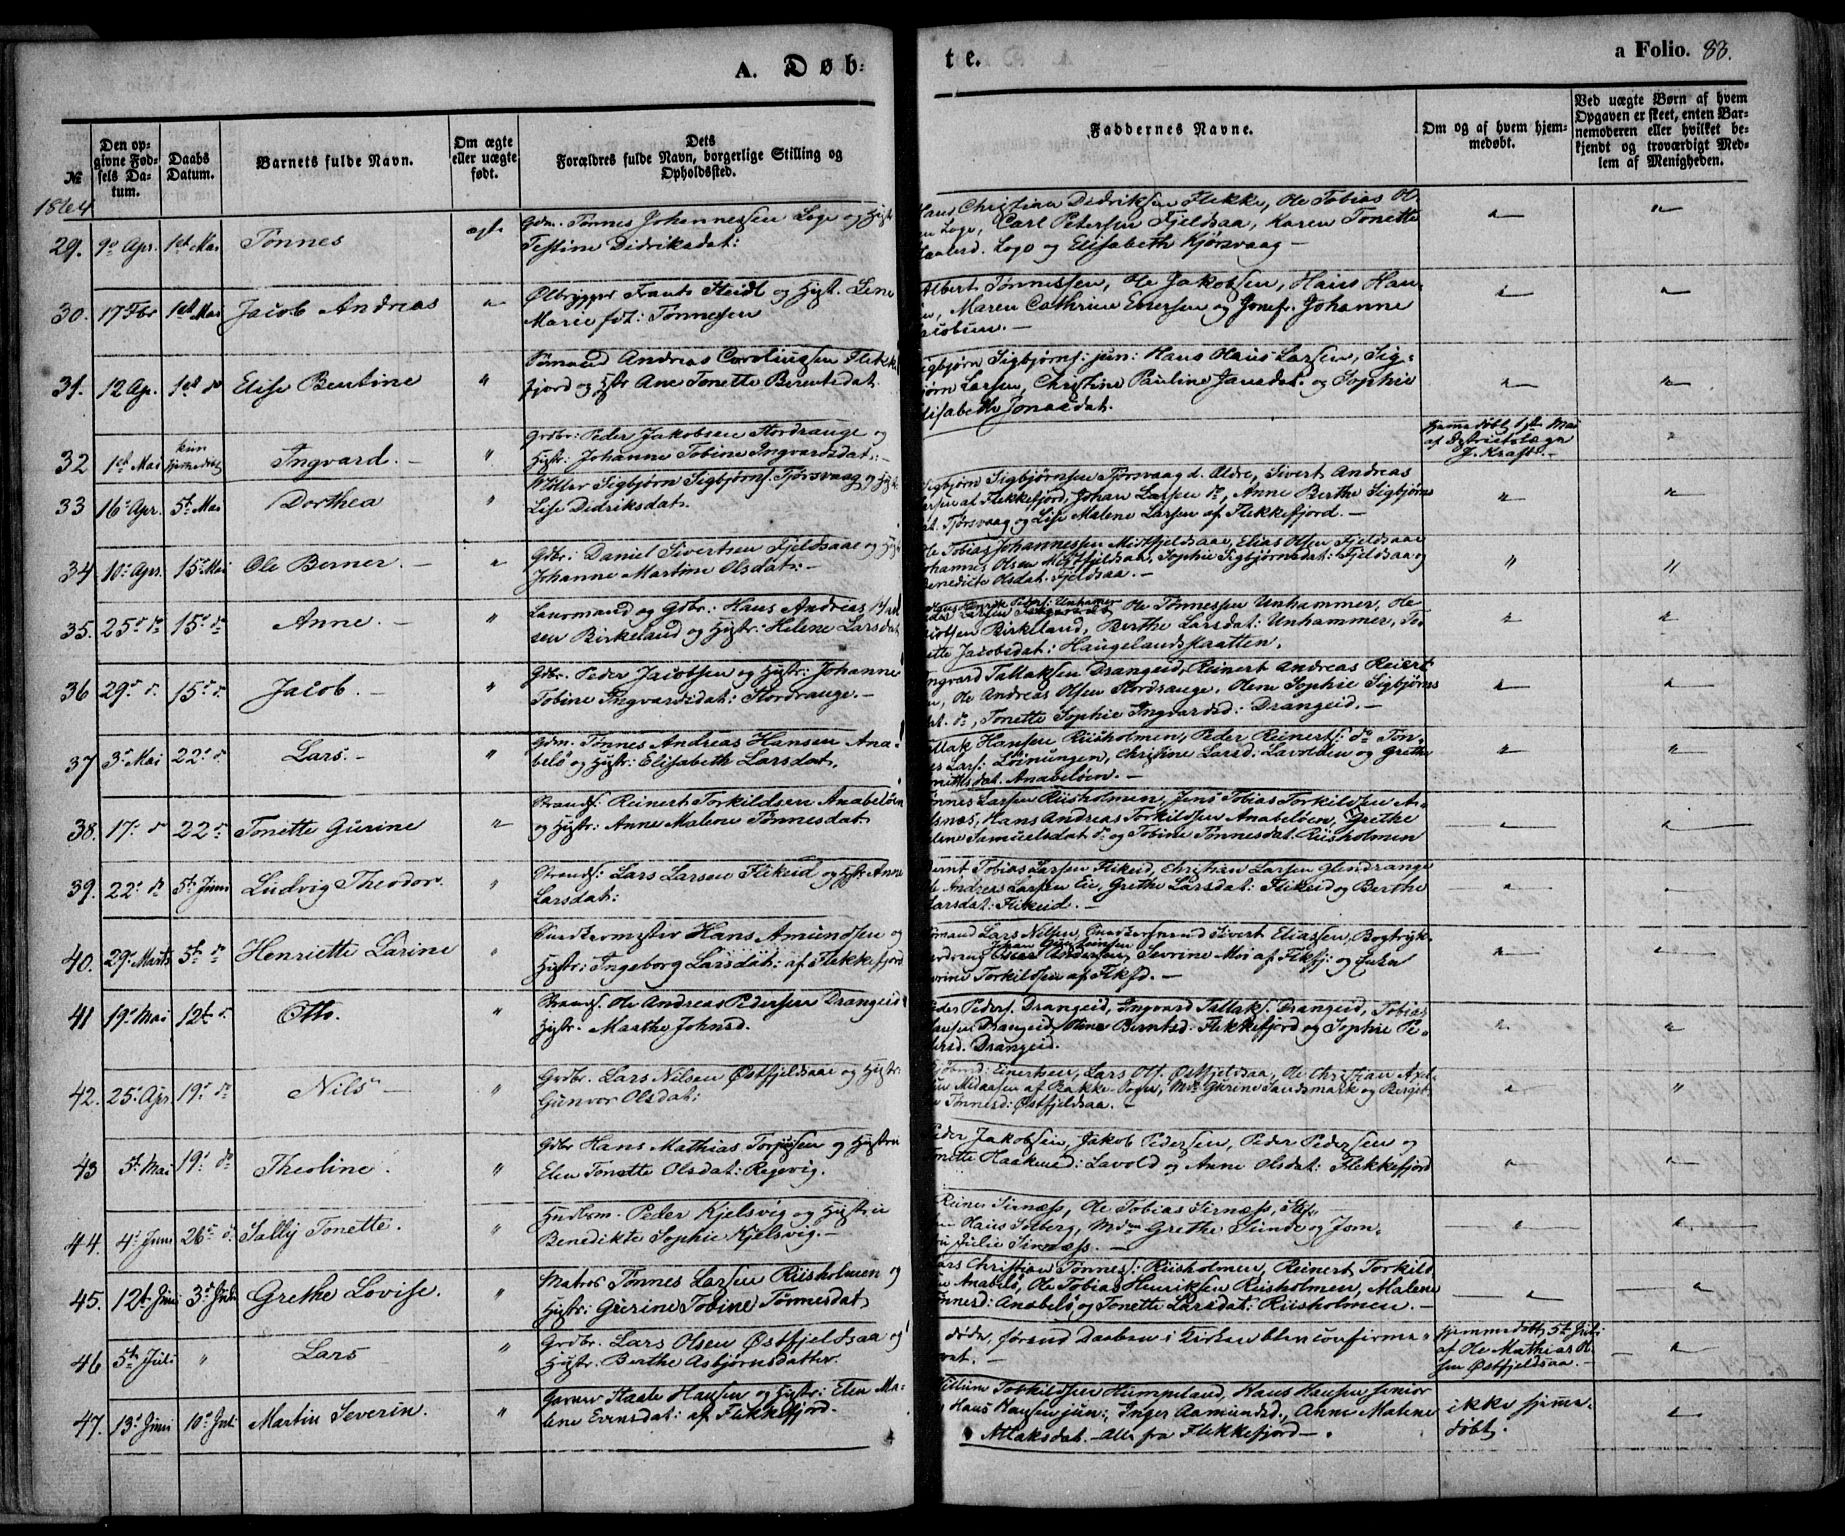 A. Døb-
te.
a Folio. 83.
№
Den op-
givne Fød-
sels Da-
tum.
Daabs
Datum.
Barnets fulde Navn.
Om ægte
eller uægte
født.
Dets
Forældres fulde Navn, borgerlige Stilling og
Opholdssted.
Faddernes Navne.
Om og af hvem hjem-
medøbt.
Ved uægte Børn af hvem
Opgaven er skeet, enten Bar-
nemoderen eller hvilket be-
kjendt og troværdigt Med-
lem af Menigheden.
1864
29. 9de Apr. 1ste Mai Tønnes ægte
Gdm. Tønnes Johannessen Loge og Hust
Testine Didriksdat:
Hans Christian Didriksen Flekke, Ole Tobias
Loge, Carl Petersen Fjeldsaa, Karen Tonette
Loge og Elisabeth Kjørsvaag —
30. 17 Fbr 1ste Mai Jacob Andreas "
Ølbrygger Frants Steidl og Hust. Lene
Marie fdt: Tønnesen
Albert Tønnessen, Ole Jakobsen, Hans Han-
Maren Cathrine Evensen og Jomfr. Johanne
31. 12 Ap. 1ste do Elise Bentine "
Sømand Andreas Caroliussen Flekke-
fjord og Hstr Ane Tonette Berntsdat.
Sigbjørn Sigbjørns: jun: Hans Hans Larsen, Sig-
bjørn Larsen, Christine Pauline Jansdat. og Sophie
Elisabeth Jonasdat.
32 1ste Mai kun hjemmedøbt Ingvard. — "
Grdbr: Peder Jakobsen Stordrange og
Hustr: Johanne Tobine Ingvardsdat: —
Hjemmedøbt 1ste Mai
af Districtslæge
J. Kraft. —
33 16. Apr. 5te Mai Dorthea "
Møller Sigbjørn Sigbjørns. Tjørsvaag og Hust
Lise Didriksdat.
Sigbjørn Sigbjørnsen Tjørsvaag d. Ældre, Sivert Andreas
Larsen af Flekkefjord, Johan Larsen do, Anne Berthe Sigbjørns
dat. Tjørsvaag og Lise Malene Larsen af Flekkefjord. —
34 10. Apr. 15. Mai Ole Berner. — "
Gdbr: Daniel Sivertsen Fjeldsaae og Hust
Johanne Martine Olsdat: —
Ole Tobias Johannessen Midtfjeldsaae, Elias Olsen Fjeldsaae
Johannes Olsen Midtfjeldsaa, Sophie Sigbjørnsdat: Fjeldsaa og
Benedicte Olsdat. Fjeldsaa. —
35. 25. do 15. do Anne. — "
Lensmand og Gdbr: Hans Andreas
sen Birkeland og Hustr: Helene Larsdat
Hans Henrik Peders: Unhammer
Ole Tønnessen Unhammer, Ole
Jacobsen Birkeland, Berthe Larsdat: Unhammer, To-
nette Jacobsdat: Haugelandskratten.
36 29. d. 15. d. Jacob. — "
Gdbr. Peder Jacobsen og Hustr: Johanne
Tobine Ingvardsdat: Stordrange. —
Ingvard Tallaksen Drangeid, Reinert Andreas Reiert-
sen, Ole Andreas Olsen Stordrange, Olene Sophie Sigbjørns
dat. do, Tonette Sophie Ingvardsd: Drangeid. —
37 3. Mai 22. d. Lars. — "
Gdm. Tønnes Andreas Hansen Ana-
belø og Hustr: Elisabeth Larsdat,
Tallak Hansen Riisholmen, Peder Reinerts: do Tøn-
nes Lars: Løiningen, Christine Larsd. Lavolden og Grethe
Anabeløen. —
38. 17. d 22. d Tonette Gurine "
Strands: Reinert Torkildsen Anabeløen
og Hustr: Anne Malene Tønnesdat.
Tønnes Larsen Riisholmen, Jens Tobias Torkildsen A-
Hans Andreas Torkildsen Anabeløen, Grethe
Malene Samuelsdat do og Tobine Tønnesdat. Riisholmen
39. 22. do 5te Juni Ludvig Theodor. "
Strands: Lars Larsen Flikeid og Hstr. Anne
Larsdat:
Bernt Tobias Larsen Flikeid, Christian Larsen Glendrange
Ole Andreas Larsen Eie, Grethe Larsdat: Flikeid og Berthe
Larsdat: Flikeid. —
40. 29. Marts 5te do Henriette Larine "
Snedkermester Hans Amundsen og
Hustr: Ingeborg Larsdat: af Flekkefjord
Sømand Lars Nilsen, Snedkersvend Sivert Eliassen, Bogtryk-
Severine Moi af Flkfj: og Enken
Torkildsen af Flkfd. —
41 19. Mai 12te d. Otto. "
Strands. Ole Andreas Pedersen Drangeid
Hustr. Marthe Johnsd.
Peder Peders. Drangeid, Ingvard Tallaks. Drangeid, Tobias
Hansen Drangeid, Oline Berntsd. Flekkefjord og Sophie Pe-
dersd. Drangeid.
42. 25. Apr 19. do Nils —
Grdbr. Lars Nilsen Østfjeldsaae og Hustr:
Gunvor Olsdat:
Einersen, Lars Ols. Østfjeldsaa, Ole Christian
af Bakke Sogn, Gurine Sandsmark og Berget
Tønnesd: Østfjeldsaa. —
43 5te Mai 19. do Theoline. "
Gdbr Hans Mathias Torjussen og Hustru
Elen Tonette Olsdat: Regevig.
Peder Jakobsen, Jakob Pedersen, Peder Pedersen og
Tonette Haakensd: Lavold og Anne Olsdat: Flekkefjord
44. 4. Juni 26. d. Sally Tonette. "
Hndlsm. Peder Kjelsvig og Hustru
Benedikte Sophie Kjelsvig. —
Reiner Sirnæss, Ole Tobias Sirnæss,
Hans Solberg, Mdm Grethe Stinde og Jom-
fru Julie Sirnæss. —
45. 12te Juni 3. Juli Grethe Lovise. "
Matros Tønnes Larsen Riisholmen og
Hustr: Gurine Tobine Tønnesdat
Lars Christian Tønnes: Riisholmen, Reinert Torkild-
sen Anabelø, Ole Tobias Henriksen Riisholmen, Malene
Tønnesd: Anabelø og Tonette Larsdat: Riisholmen. —
46 5te Juli " Lars "
Grdbr. Lars Olsen Østfjeldsaa og
Hustr. Berthe Asbjørnsdatter.
døde, førend Daaben i Kirken blev confirme-
ret. —
Hjemmedøbt 5te Juli
af Ole Mathias Ol-
sen Østfjeldsaa. —
47. 13. Juni 10. Juli Martin Severin. "
Garver Staale Hansen og Hustr: Elen Ma-
lene Evensdat: af Flekkefjord.
Villum Torkildsen Humpeland, Hans Hansen senior
og Hans Hansen jun:, Inger Aamundsd., Anne Malene
Atlaksdat. — Alle fra Flekkefjord —.
ikke hjemme-
døbt.